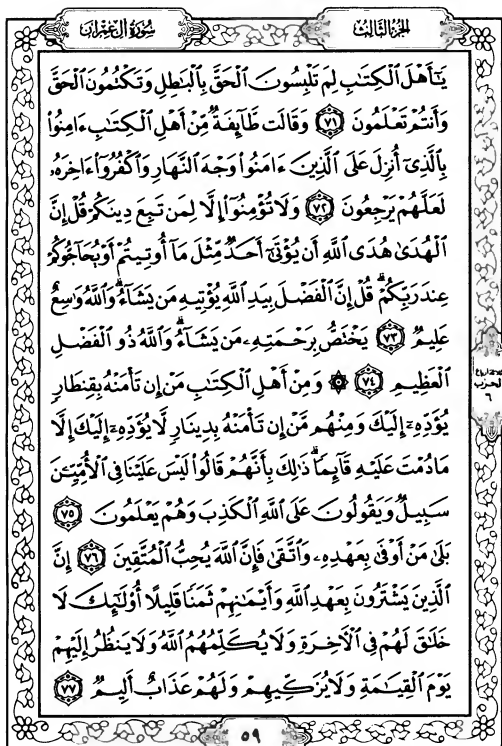 الجزء الثالث
سورة آل عمران
يَٰٓأَهْلَ ٱلْكِتَٰبِ لِمَ تَلْبِسُونَ ٱلْحَقَّ بِٱلْبَٰطِلِ وَتَكْتُمُونَ ٱلْحَقَّ
وَأَنتُمْ تَعْلَمُونَ ٧١ وَقَالَت طَّآئِفَةٌ مِّنْ أَهْلِ ٱلْكِتَٰبِ ءَامِنُوا۟
بِٱلَّذِىٓ أُنزِلَ عَلَى ٱلَّذِينَ ءَامَنُوا۟ وَجْهَ ٱلنَّهَارِ وَٱكْفُرُوٓا۟ ءَاخِرَهُۥ
لَعَلَّهُمْ يَرْجِعُونَ ٧٢ وَلَا تُؤْمِنُوٓا۟ إِلَّا لِمَن تَبِعَ دِينَكُمْ قُلْ إِنَّ
ٱلْهُدَىٰ هُدَى ٱللَّهِ أَن يُؤْتَىٰٓ أَحَدٌ مِّثْلَ مَآ أُوتِيتُمْ أَوْ يُحَآجُّوكُمْ
عِندَ رَبِّكُمْ ۗ قُلْ إِنَّ ٱلْفَضْلَ بِيَدِ ٱللَّهِ يُؤْتِيهِ مَن يَشَآءُ ۗ وَٱللَّهُ وَٰسِعٌ
عَلِيمٌ ٧٣ يَخْتَصُّ بِرَحْمَتِهِۦ مَن يَشَآءُ ۗ وَٱللَّهُ ذُو ٱلْفَضْلِ
ٱلْعَظِيمِ ٧٤ ۞ وَمِنْ أَهْلِ ٱلْكِتَٰبِ مَنْ إِن تَأْمَنْهُ بِقِنطَارٍ
يُؤَدِّهِۦٓ إِلَيْكَ وَمِنْهُم مَّنْ إِن تَأْمَنْهُ بِدِينَارٍ لَّا يُؤَدِّهِۦٓ إِلَيْكَ إِلَّا
مَا دُمْتَ عَلَيْهِ قَآئِمًا ۗ ذَٰلِكَ بِأَنَّهُمْ قَالُوا۟ لَيْسَ عَلَيْنَا فِى ٱلْأُمِّيِّۦنَ
سَبِيلٌ وَيَقُولُونَ عَلَى ٱللَّهِ ٱلْكَذِبَ وَهُمْ يَعْلَمُونَ ٧٥
بَلَىٰ مَنْ أَوْفَىٰ بِعَهْدِهِۦ وَٱتَّقَىٰ فَإِنَّ ٱللَّهَ يُحِبُّ ٱلْمُتَّقِينَ ٧٦ إِنَّ
ٱلَّذِينَ يَشْتَرُونَ بِعَهْدِ ٱللَّهِ وَأَيْمَٰنِهِمْ ثَمَنًا قَلِيلًا أُو۟لَٰٓئِكَ لَا
خَلَٰقَ لَهُمْ فِى ٱلْءَاخِرَةِ وَلَا يُكَلِّمُهُمُ ٱللَّهُ وَلَا يَنظُرُ إِلَيْهِمْ
يَوْمَ ٱلْقِيَٰمَةِ وَلَا يُزَكِّيهِمْ وَلَهُمْ عَذَابٌ أَلِيمٌ ٧٧
الحزب
٦
٥٩